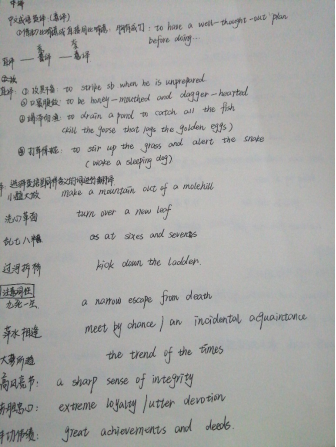 胸有成竹: to have a well-thought-out plan
before doing...
直译 意译
to strike sb when he is unprepared
② 口蜜腹剑: to be honey-mouthed and dagger-hearted
③ 竭泽而渔: to drain a pond to catch all the fish
(kill the goose that lays the golden eggs)
④ 打草惊蛇: to stir up the grass and alert the snake
(wake a sleeping dog)
小题大做 make a mountain out of a molehill
洗心革面 turn over a new leaf
乱七八糟 as at sixes and sevens
过河拆桥 kick down the ladder.
九死一生 a narrow escape from death
萍水相逢 meet by chance / an incidental acquaintance
大势所趋 the trend of the times
高风亮节: a sharp sense of integrity
赤胆忠心: extreme loyalty / utter devotion
丰功伟绩: great achievements and deeds.